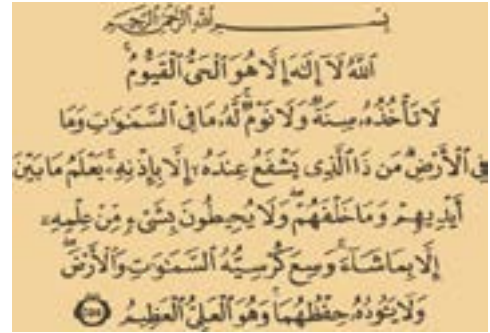 بِسْمِ ٱللَّهِ ٱلرَّحْمَٰنِ ٱلرَّحِيمِ
ٱللَّهُ لَآ إِلَٰهَ إِلَّا هُوَ ٱلْحَىُّ ٱلْقَيُّومُ ۚ
لَا تَأْخُذُهُۥ سِنَةٌ وَلَا نَوْمٌ ۚ لَّهُۥ مَا فِى ٱلسَّمَٰوَٰتِ وَمَا
فِى ٱلْأَرْضِ ۗ مَن ذَا ٱلَّذِى يَشْفَعُ عِندَهُۥٓ إِلَّا بِإِذْنِهِۦ ۚ يَعْلَمُ مَا بَيْنَ
أَيْدِيهِمْ وَمَا خَلْفَهُمْ ۖ وَلَا يُحِيطُونَ بِشَىْءٍ مِّنْ عِلْمِهِۦٓ
إِلَّا بِمَا شَآءَ ۚ وَسِعَ كُرْسِيُّهُ ٱلسَّمَٰوَٰتِ وَٱلْأَرْضَ ۖ
وَلَا يَـُٔودُهُۥ حِفْظُهُمَا ۚ وَهُوَ ٱلْعَلِىُّ ٱلْعَظِيمُ